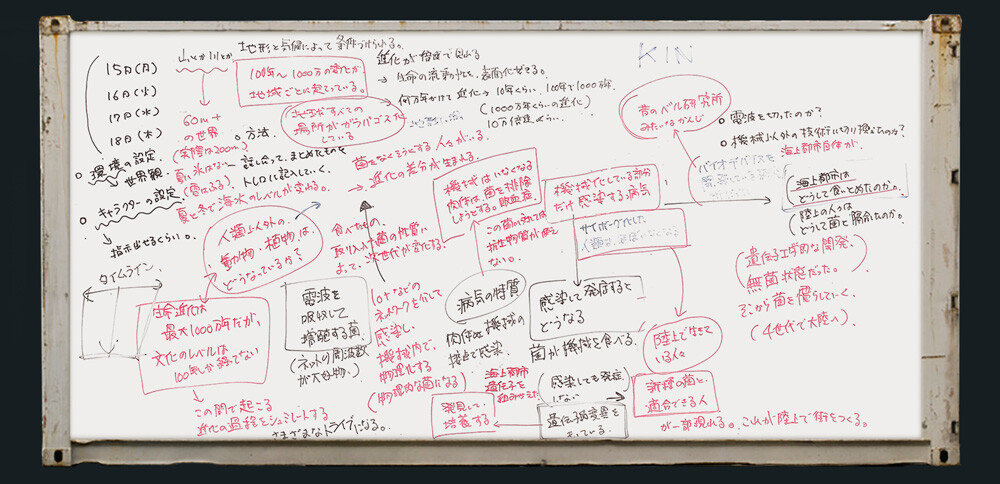 15日(月)
16日(火)
17日(水)
18日(木)
山とか川とか
地形と気候によって条件づけられる。
100年〜1000万の
地域ごとに起こっている。
進化が倍速で
→ 生命の流動性を、表面化させる。
何万年かけて進化→10年くらい、100年で1000万年、
(1000万年くらいの進化)
10万倍速
地球すべての
場所がガラパゴス化
している
60m+
の世界
(実際は200m)
夏と冬で海水のレベルが変わる。
○方法
話し合って、まとめたものを
トレロに記入していく。
○環境の設定
世界観
○キャラクターの設定
指示出せるくらい。
タイムライン
菌をなくそうとする人々がいる。
→ 進化の差分が生まれる。
人類以外の、
動物、植物は、
どうなっているか?
食べたもの、
取り入れた菌の性質に
よって、次世代が変化する
機械はいなくなる
肉体は、菌を排除
しようとする。敗血症。
機械化している部分
だけ感染する病気
サイボーグ化した
人類は、
この菌に
抗生物質が
ない。
KIN
昔のベル研究所
みたいなかんじ
○電波を切ったのか?
○機械以外の技術に切り換えたのか?
海上都市自体が、
バイオデバイスを
海上都市は
どうして食いとめたのか。
陸上の人々は
どうして菌と融合したのか。
(遺伝子工学的な開発、
無菌状態だった。
そこから菌を
(4世代で大陸へ)
生命進化は
最大1000万年だが、
文化のレベルは
100年しか経ってない
この間で起こる
進化の過程をシュミレートする
さまざまなトライブになる。
電波を
吸収して
増殖する菌
(ネットの周波数
が大好物。)
IOTなどの
ネットワークを介して
感染し、
機械内で、
物理化する
(物理的な菌になる)
病気の特質
肉体と機械の
接点で感染。
感染して発症すると
どうなる
菌が機械を食べる。
海上都市
遺伝子を
組みかえた
発見して、
培養する
(感染しても発症
しない
遺伝子的変異を
もっている。
陸上で生きて
いる人々
新種の菌と、
適合できる人
が一部現れる。これが陸上で街をつくる。